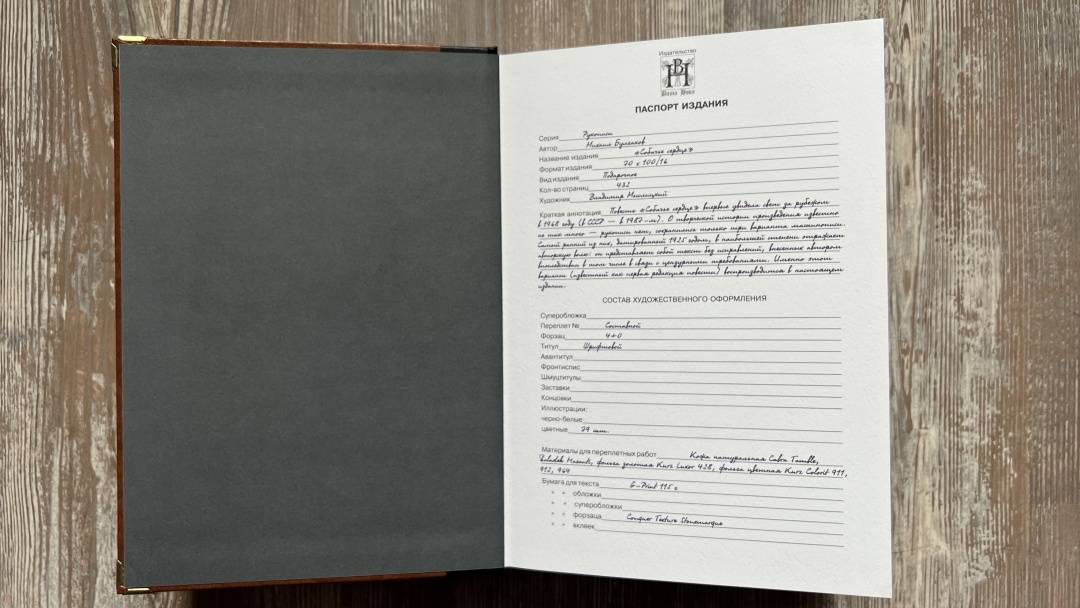 Издательство
ВН
Вита Нова
ПАСПОРТ ИЗДАНИЯ
Серия Рукописи
Автор Михаил Булгаков
Название издания «Собачье сердце»
Формат издания 70 х 100/16
Вид издания Подарочное
Кол-во страниц 432
Художник Владимир Мыслицкий
Краткая аннотация Повесть «Собачье сердце» впервые увидела свет за рубежом
в 1968 году (в СССР — в 1987-м). О творческой истории произведения известно
не так много — рукописи нет, сохранились только три варианта машинописи.
Самый ранний из них, датированный 1925 годом, в наибольшей степени отражает
авторскую волю: он представляет собой текст без исправлений, внесенных автором
впоследствии в том числе в связи с цензурными требованиями. Именно этот
вариант (известный как первая редакция повести) воспроизводится в настоящем
издании.
СОСТАВ ХУДОЖЕСТВЕННОГО ОФОРМЛЕНИЯ
Суперобложка
Переплет № Составной
Форзац 4+0
Титул Шрифтовой
Авантитул
Фронтиспис
Шмуцтитулы
Заставки
Концовки
Иллюстрации:
черно-белые
цветные 79 илл.
Материалы для переплетных работ Кожа натуральная Cabra
фольга золотная Kurz Luxor 428, фольга цветная Kurz Colorit 911,
912, 964
Бумага для текста G-Print 115 г
" " обложки
" " суперобложки
" " форзаца Conqueror Texture Stonemarque
" " вклеек